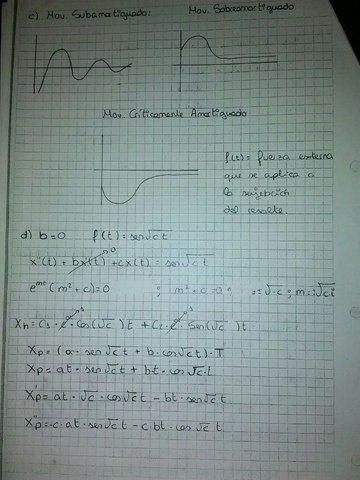 c) Mov. Subamortiguado:
Mov. Sobreamortiguado
Mov. Críticamente Amortiguado
f(t) = fuerza externa
que se aplica a
la
del resorte.
d) b=0 f(t) = sen√c t
x''(t) + bx'(t) + cx(t) = sen√c t
0
e^mt (m² + c) = 0 ; m² + c = 0 ; = ± √-c ; m = ± √c i
Xh = C1 · e^0 · cos(√c) t + C2 · e^0 · sen(√c) t.
Xp = (a · sen√c t + b · cos√c t) · T
Xp = at · sen√c t + bt · cos√c · t
Xp' = at · √c · cos√c t - bt · sen√c t
Xp'' = -c · at · sen√c t - c · bt · cos√c t